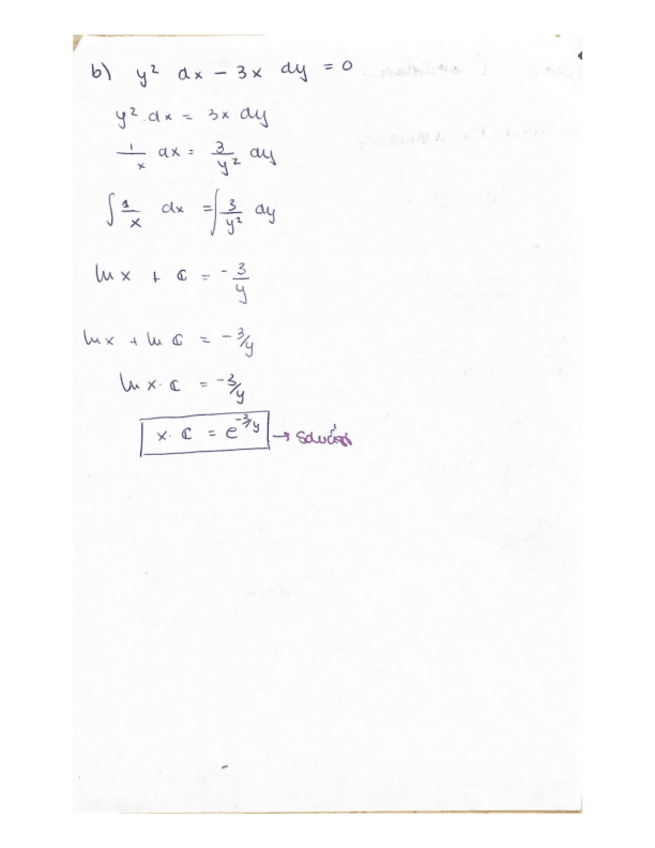 b) y² dx - 3x dy = 0
y² . dx = 3x . dy
1/x dx = 3/y² dy
∫ 1/x dx = ∫ 3/y² dy
ln x + C = - 3/y
ln x + ln C = - 3/y
ln x . C = - 3/y
x . C = e^(-3/y) →